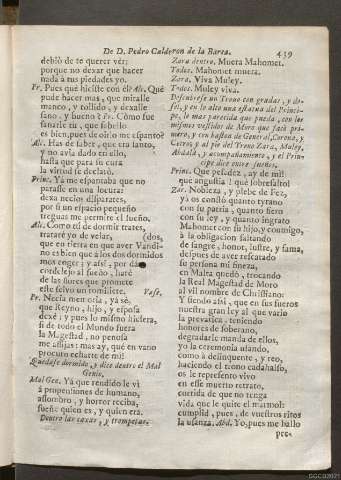 De D. Pedro Calderon de la Barca.
439
debiò de te querer vèr;
porque no dexar que hacer
nada à tus piedades yo.
Pr. Pues què hiciste con èl? Alc. Què
pude hacer mas, que miralle
manco, y tullido, y dexalle
sano, y bueno? Pr. Còmo fue
sanarle tu, que sabello
es bien, pues de oirlo me espanto?
Alc. Has de saber, que era santo,
y no avia dado en ello,
hasta que para su cura
la virtud se declarò.
Princ. Yà me espantaba que no
parasse en una locura:
dexa necios disparates,
por si un espacio pequeño
treguas me permite el sueño.
Alc. Como essi de dormir trates,
tratarè yo de velar;
(dos,
que en tierra en que aver
no es bien que à los dos dormidos
nos cogen; y assi, por dàr
cordelejo al sueño, harè
de las flores que promete
este selvo un ramillete.
Vase.
Pr. Necia memoria, yà sè,
que Reyno, hijo, y esposa
dexè; y pues lo mismo hiciera,
si de todo el Mundo fuera
la Magestad, no penosa
me aflijas: mas ay, què en vano
procuro echarte de mi!
Quedase dormido, y dice dentro el Mal
Genio.
Mal Gen. Yà que rendido le vi
à propensiones de humano,
assombro, y horror reciba,
sueñe quien es, y quien era.
Dentro las caxas, y trompetas.
Zara dentro. Muera Mahomet.
Todos. Mahomet muera.
Zara. Viva Muley.
Todos. Muley viva.
Descubrese un Trono con gradas, y dosel,
y en lo alto una estatua del Principe,
lo mas parecida que pueda, con los
mismos vestidos de Moro que sacò primero,
y con baston de General, Corona, y
Cetro; y al pie del Trono Zara, Muley,
Abdalà, y acompañamiento, y el Principe
dice entre sueños.
Princ. Què pesadèz, ay de mi!
què angustia! què sobresalto!
Zar. Nobleza, y plebe de Fez,
yà os constò quanto tyrano
con su patria, quanto fiero
con su ley, y quanto ingrato
Mahomet con su hijo, y conmigo,
à la obligacion faltando
de sangre, honor, lustre, y fama,
despues de aver rescatado
su persona mi fineza,
en Malta quedò, trocando
la Real Magestad de Moro
al vil nombre de Christiano:
Y siendo assi, que en sus fueros
nuestra gran ley al que vario
la prevarica, teniendo
honores de soberano,
degradarle manda de ellos,
yo la ceremonia usando,
como à delinquente, y reo,
haciendo el trono cadahalso,
os le represento vivo
en esse muerto retrato,
careciendo de que no tenga
vida que le quite el marmol:
cumplid, pues, de vuestros ritos
la usanza. Abd. Yo, pues me hallo
pre-